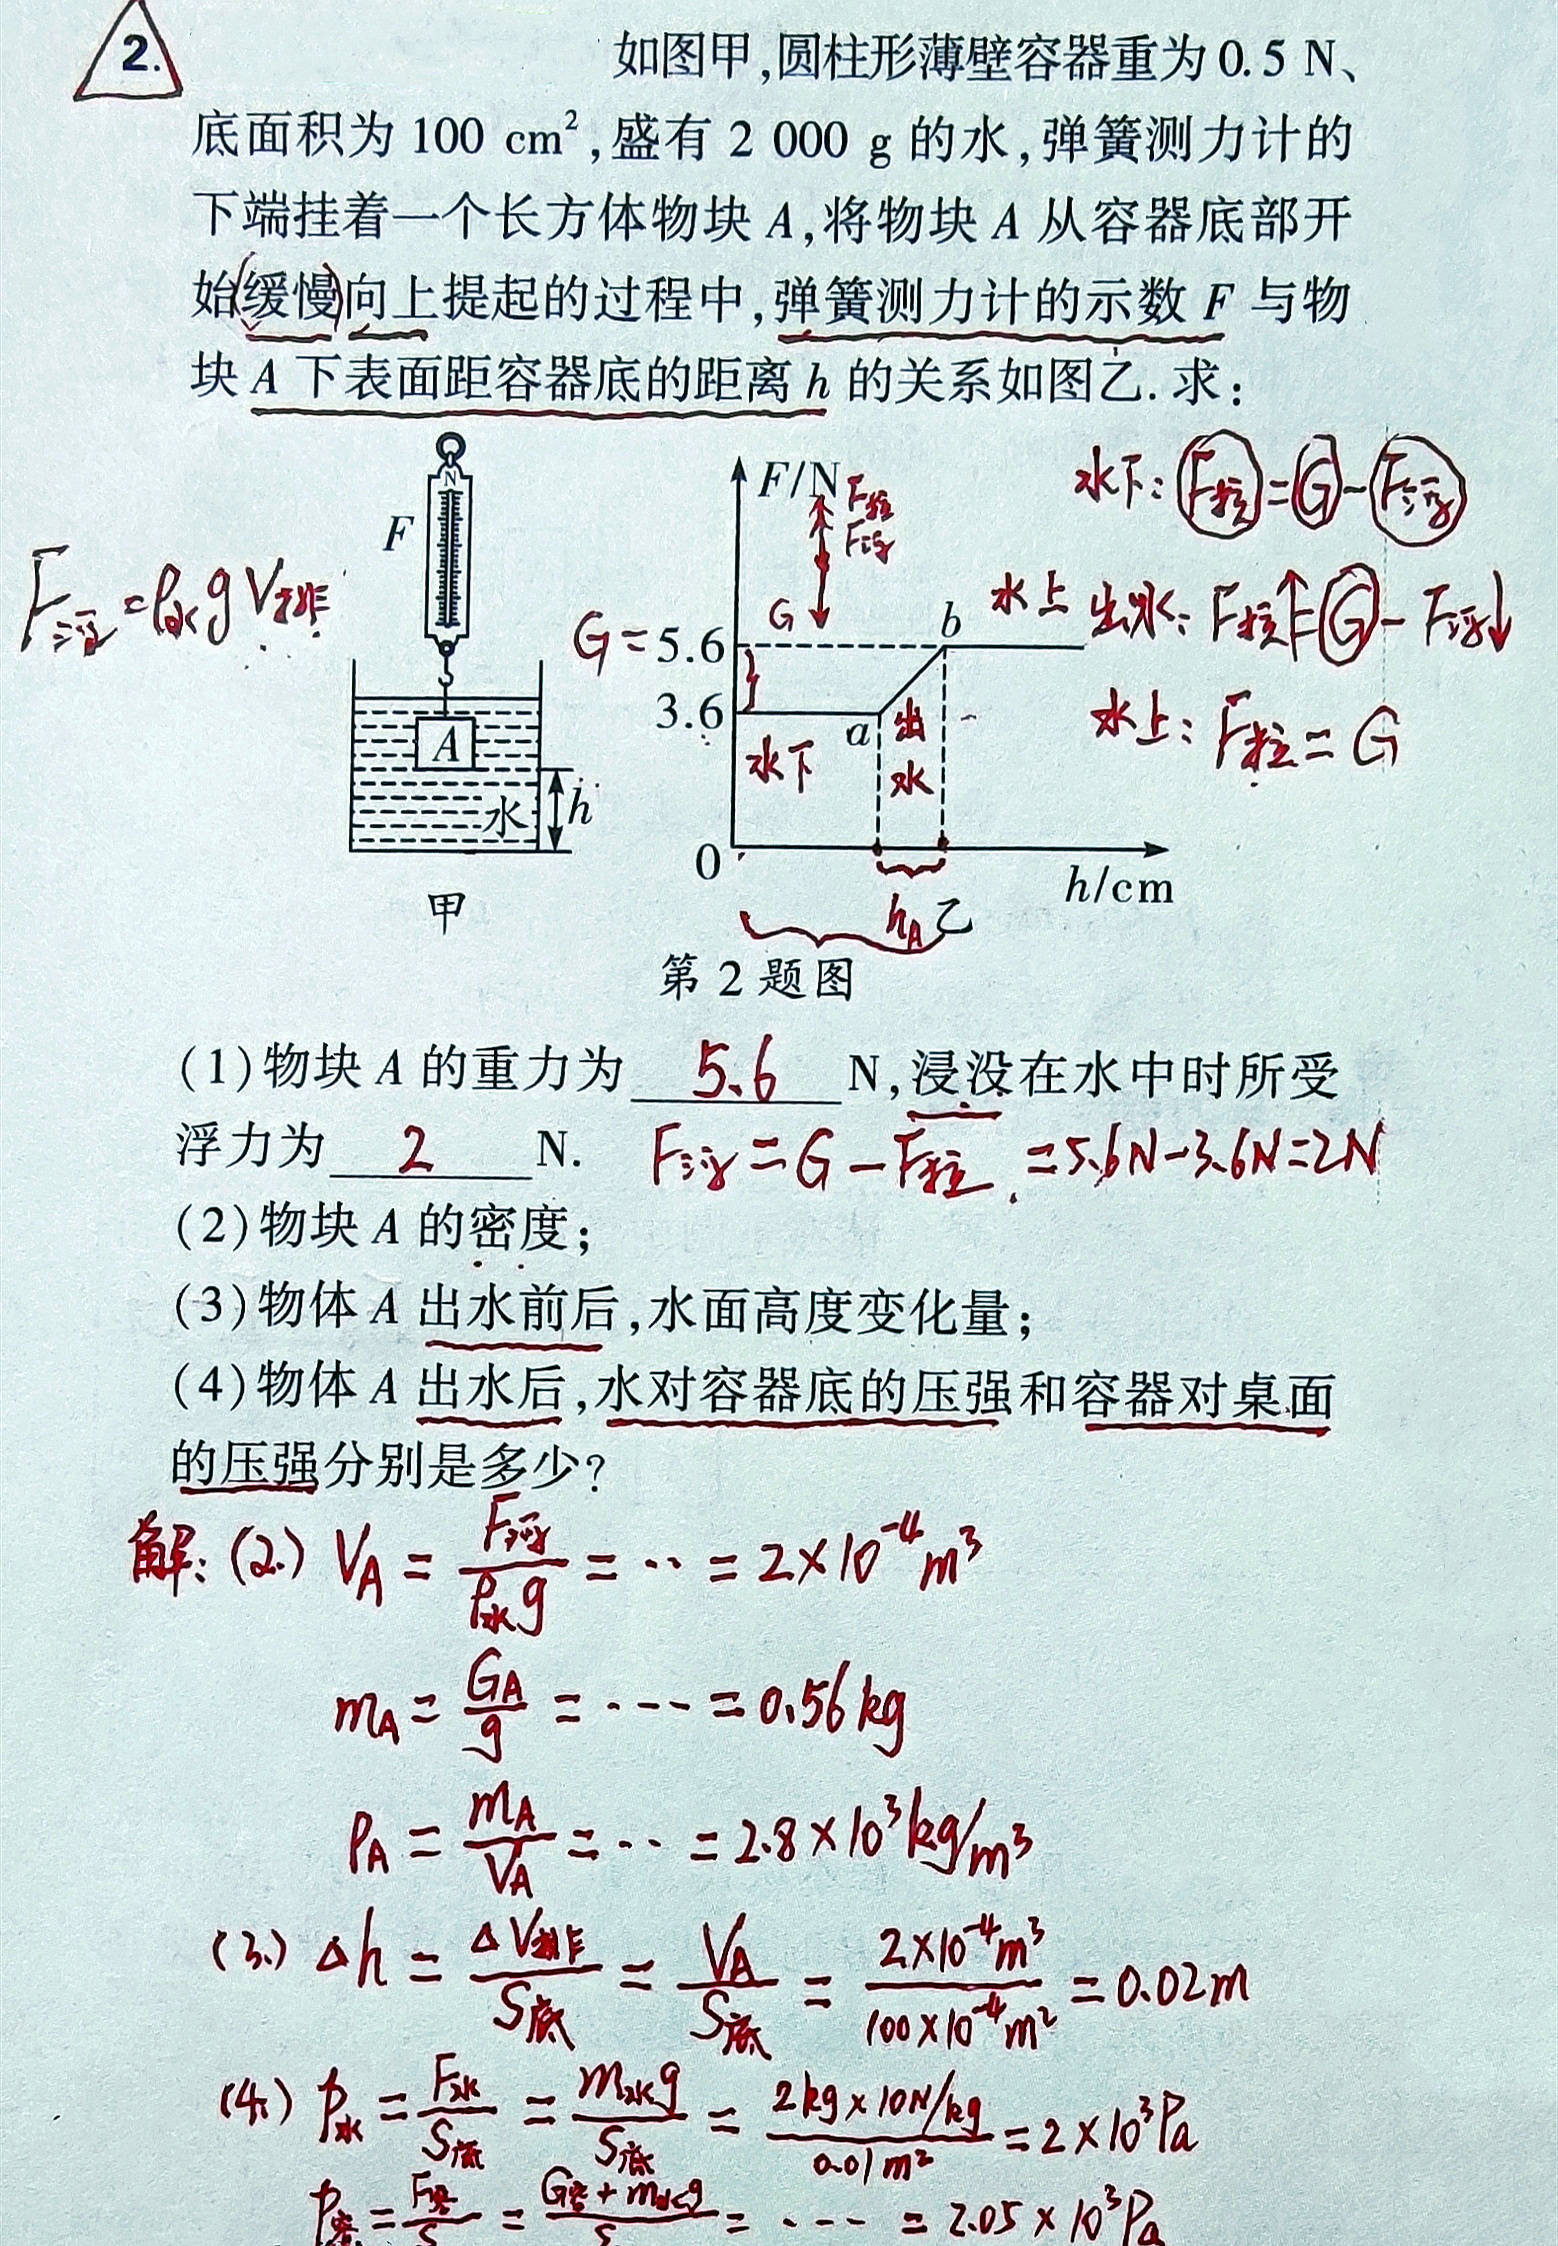 2. 如图甲,圆柱形薄壁容器重为0.5 N、
底面积为 100 cm²,盛有 2 000 g 的水,弹簧测力计的
下端挂着一个长方体物块 A,将物块 A 从容器底部开
始(缓慢)向上提起的过程中,弹簧测力计的示数 F 与物
块 A 下表面距容器底的距离 h 的关系如图乙.求:
水下: F拉=G-F浮
F浮=ρ水gV排
N
F
A
水
h
甲
F/N
F拉
F浮
G
G=5.6
3.6
0
水下
a
出水
b
水上
h/cm
hA
乙
出水: F拉↑=G-F浮↓
水上: F拉=G
第 2 题图
(1)物块 A 的重力为 5.6 N,浸没在水中时所受
浮力为 2 N. F浮=G-F拉=5.6N-3.6N=2N
(2)物块 A 的密度;
(3)物体 A 出水前后,水面高度变化量;
(4)物体 A 出水后,水对容器底的压强和容器对桌面
的压强分别是多少?
解: (2.) VA = F浮/ρ水g = ·· = 2×10⁻⁴m³
mA = GA/g = ---- = 0.56kg
ρA = mA/VA = ·-· = 2.8×10³kg/m³
(3.) Δh = ΔV排/S底 = VA/S底 = 2×10⁻⁴m³/100×10⁻⁴m² = 0.02m
(4.) p水 = F水/S底 = m水g/S底 = 2kg×10N/kg/0.01m² = 2×10³Pa
p容 = F容/S = G容+m水g/S = ---- = 2.05×10³Pa